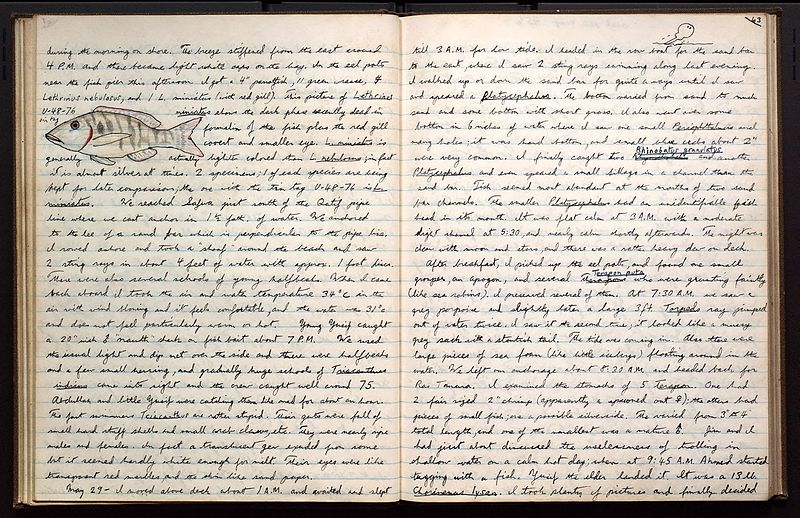 during the morning on shore. The breeze stiffened from the east around
4 P.M. and there became light white caps on the bay. In the eel pots
near the fish pier this afternoon I got a 4" parrotfish, 11 green wrasse, &
Lethrinus nebulosus, and 1 L. miniatus (with red gill). This picture of Lethrinus
U-48-76 miniatus shows the dark phase
in tag formalin of the fish plus the red gill
covert and smaller eye. L. miniatus is
generally actually lighter colored than L. nebulosus; in fact
it is almost silver at times. 2 specimens; 1 of each species are being
kept for later comparison; the one with the tin tag U-48-76 is L.
miniatus. We reached Safwa just south of the Qatif pipe
line where we cast anchor in 1 1/2 fath. of water. We anchored
to the lee of a sand bar which is perpendicular to the pipe line.
I rowed ashore and took a short around the beach and saw
2 sting rays in about 4 feet of water with approx. 1 foot discs.
There were also several schools of young halfbeaks. When I came
back aboard I took the air and water temperature 34°C in the
air with wind blowing and it feels comfortable, and the water was 31°C
and does not feel particularly warm or hot. Young Yusif caught
a 20" shark on fish bait about 7 P.M. We used
the usual light and dip net over the side and there were halfbeaks
and a few small herring, and gradually huge schools of Triacanthus
indicus came into sight and the crew caught well around 75.
Abdullah and little Yusif were catching them like mad for about an hour.
The fast swimmers Triacanthus are rather stupid. Their guts were full of
small hard stuff shells and small crab claws, etc. They were nearly ripe
males and females. In fact a translucent goo exuded from some
but it seemed hardly white enough for milt. Their eyes were like
transparent red marbles and the skin like sand paper.
May 29 - I moved above deck about 1 A.M. and waited and slept
63
till 3 A.M. for low tide. I headed in the row boat for the sand bar
to the east where I saw 2 sting rays swimming along last evening.
I walked up or down the sand bar for quite a ways until I saw
and speared a Platycephalus. The bottom varied from sand to muddy
sand and some bottom with short grass. I also went over some
bottom in 6 inches of water where I saw one small Periophthalmus and
many holes; it was hard bottom, and small blue crabs about 2"
Rhinobatus granulatus
were very common. I finally caught two and another
Platycephalus and even speared a small in a channel thru the
sand bar. Fish seemed most abundant at the mouths of two sand
bar channels. The smaller Platycephalus had an unidentifiable fish
head in its mouth. It was flat calm at 3 A.M. with a moderate
drift ahead at 5:30, and nearly calm shortly afterwards. The night was
clear with moon and stars, and there was a rather heavy dew on deck.
After breakfast, I picked up the eel pots, and found one small
Terapon puta
grouper, an apogon, and several who were grunting faintly
(like sea robins). I preserved several of them. At 7:30 A.M. we saw a
grey porpoise and slightly later a large 3 ft. Torpedo ray jumped
out of water twice. I saw it the second time; it looked like a mucusy
grey sack with a starkish tail. The tide was coming in. Also there were
large pieces of sea foam (like little icebergs) floating around in the
water. We left our anchorage about 8:30 A.M. and headed back for
Ras Tanura. I examined the stomachs of 5 Terapon. One had
2 fair sized 2" shrimp (apparently a spawned out ♀); the others had
pieces of small fish, one a possible silverside. The varied from 3" to 4"
total length, and one of the smallest was a mature ♂. Jim and I
had just about discussed the uselessness of trolling in
shallow water on a calm hot day, when at 9:45 A.M. Ahmed started
tugging with a fish. Yusif the elder landed it. It was a 13 lb.
Chorinemus lysan. I took plenty of pictures and finally decided